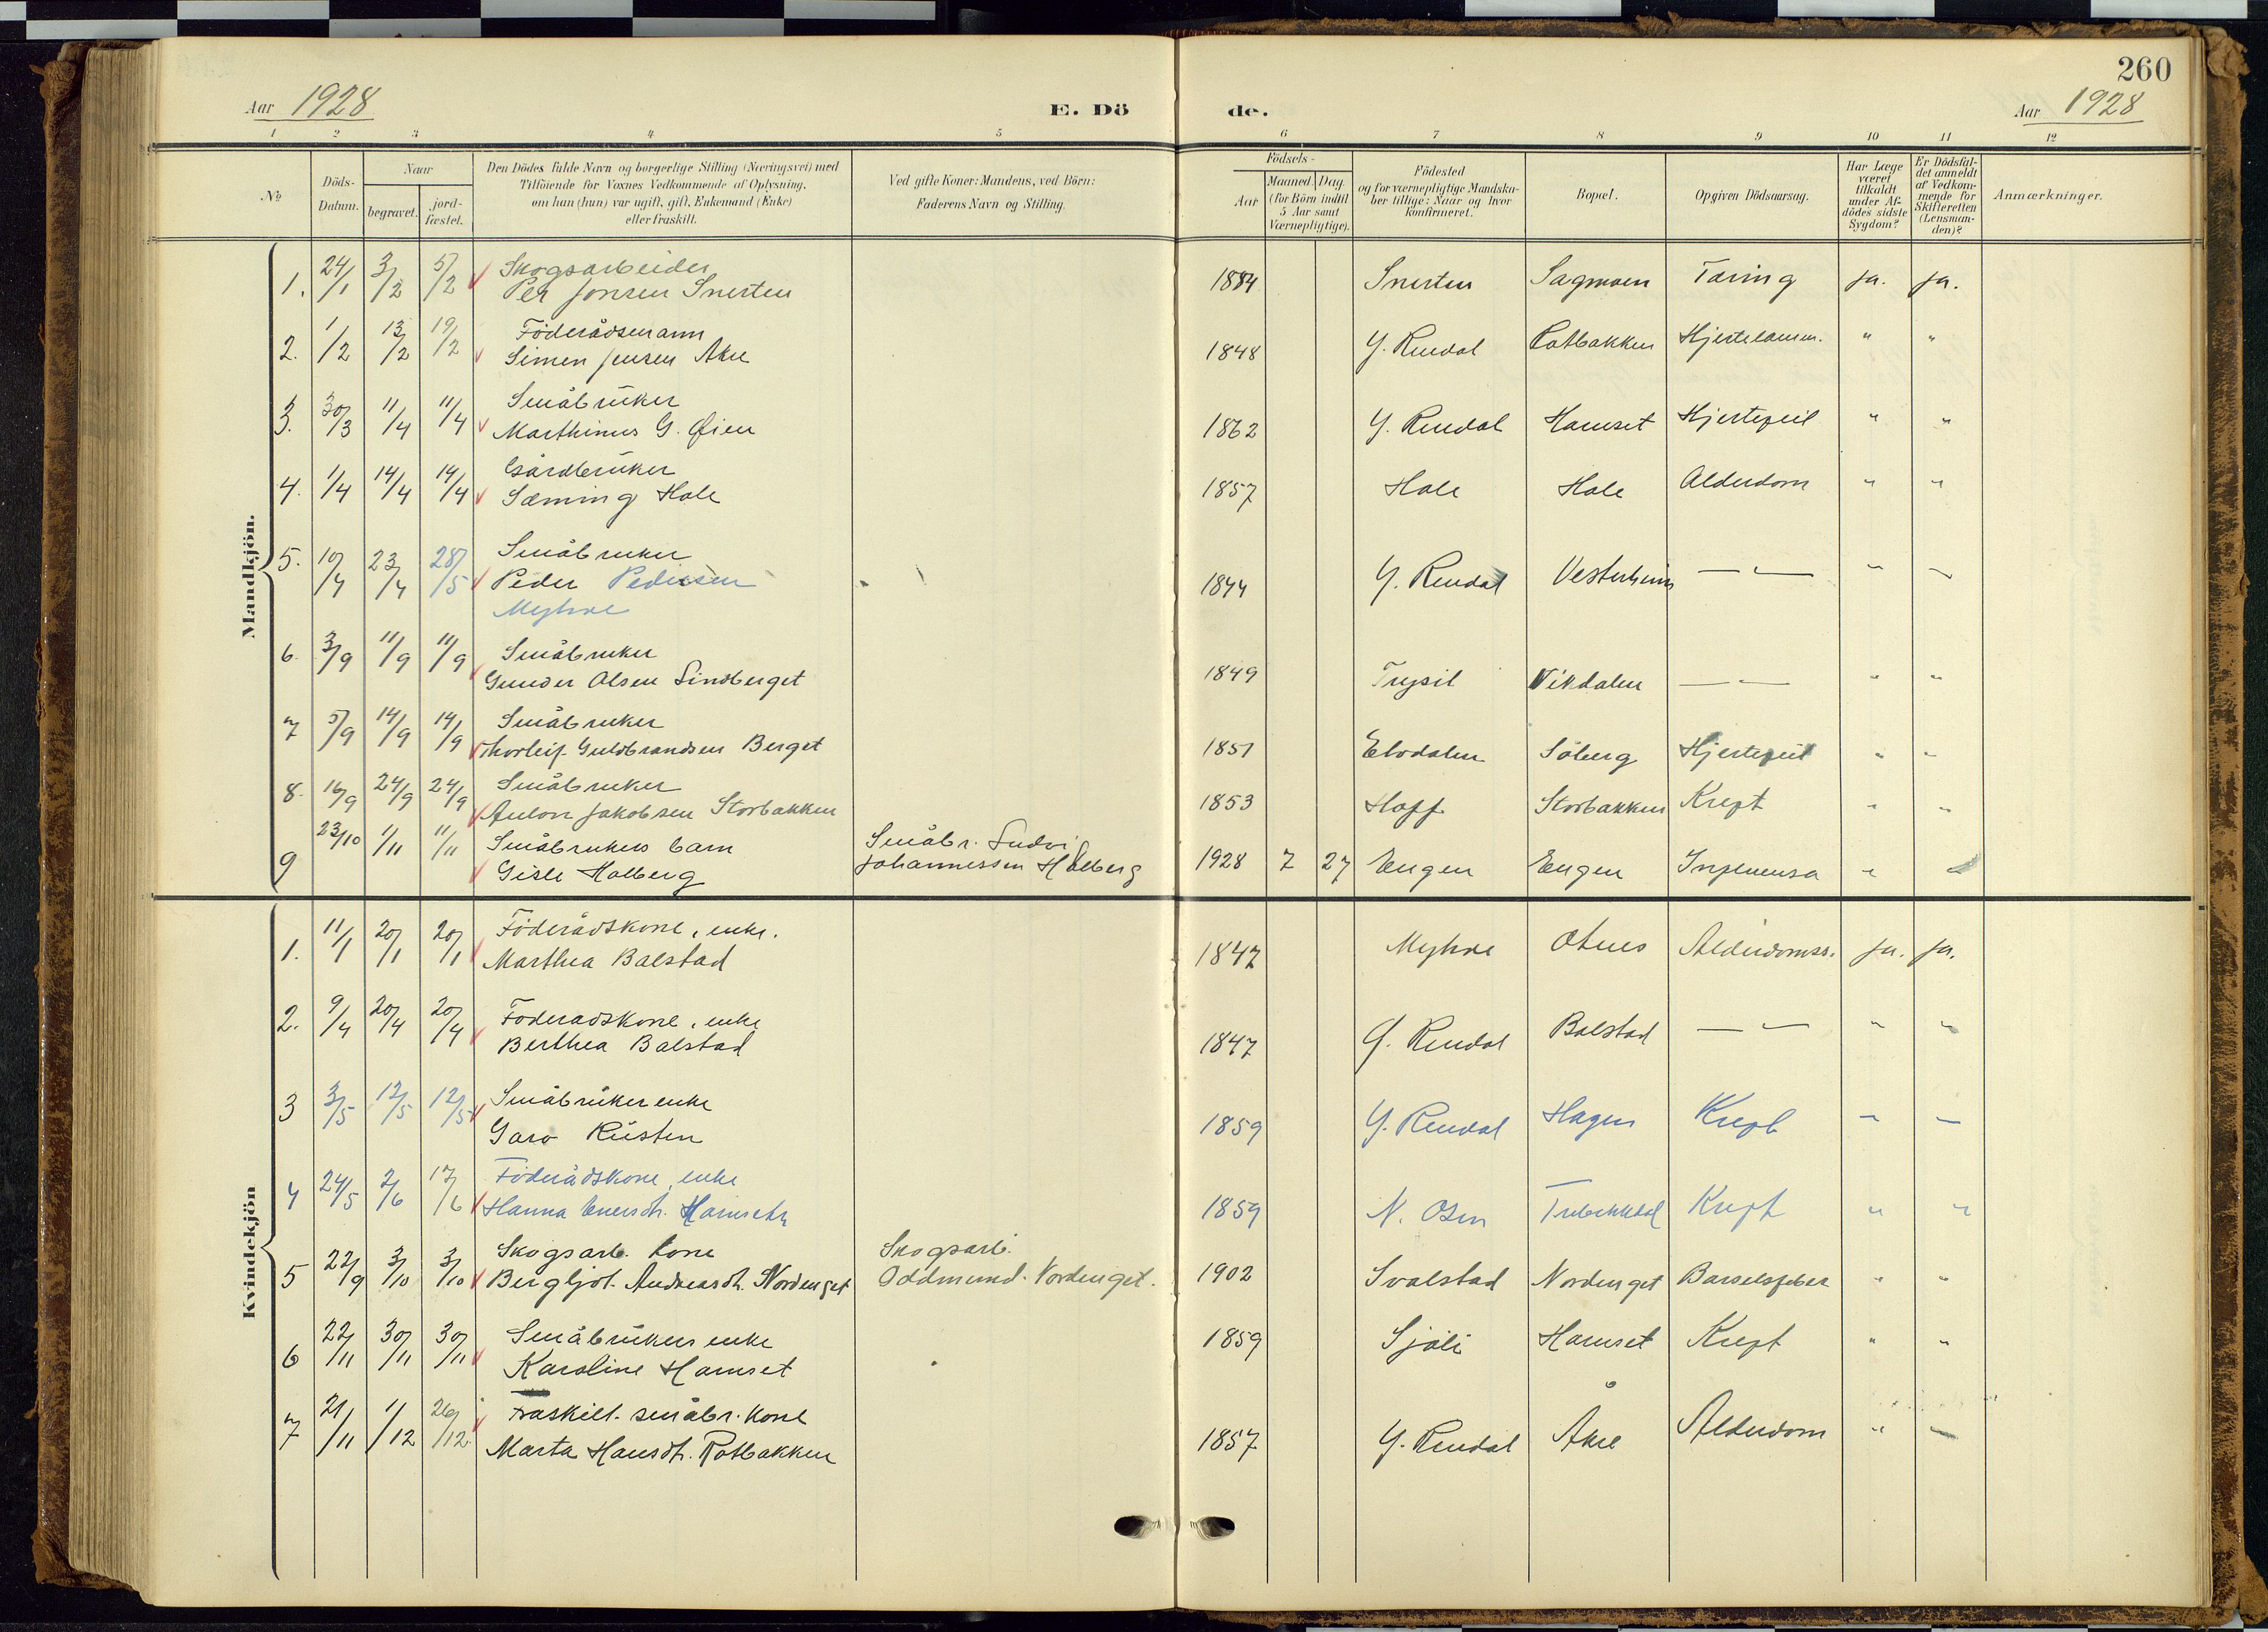 260
Aar 1928
E. Dö
de.
Aar 1928
1 2 3 4 5 6 7 8 9 10 11 12
No
Döds-Datum.
Naar
begravet.
jord-fæstet.
Den Dödes fulde Navn og borgerlige Stilling (Næringsvei) med
Tilföiende for Voxnes Vedkommende af Oplysning,
om han (hun) var ugift, gift, Enkemand (Enke)
eller fraskilt.
Ved gifte Koner: Mandens, ved Börn:
Faderens Navn og Stilling.
Födsels-
Aar
Maaned. Dag.
(for Börn indtil
5 Aar samt
Værnepligtige).
Födested
og for værnepligtige Mandska-
ber tillige: Naar og hvor
konfirmeret.
Bopæl.
Opgiven Dödsaarsag.
Har Læge
været
tilkaldt
under Af-
dödes sidste
Sygdom?
Er Dödsfal-
det anmeldt
af Vedkom-
mende for
Skifteretten
(Lensman-
den)?
Anmærkninger.
Mandkjön.
1. 24/1 3/2 5/2 Skogsarbeider
Per Jonsen Snerten 1884 Snerten Sagmoen Tæring ja. ja.
2. 1/2 13/2 19/2 Föderådsmann
Simen Jensen Akre 1848 Y. Rendal Ratbakken Hjertelamm. " "
3. 30/3 11/4 11/4 Småbruker
Marthinus G. Øien 1862 Y. Rendal Hamset Hjertefeil " "
4. 1/4 14/4 14/4 Gårdbruker
Sæming Hole 1857 Hole Hole Alderdom " "
5. 10/4 23/4 28/5 Småbruker
Peder Pedersen
Myhre 1844 Y. Rendal Vesterheim — " — " "
6. 3/9 11/9 11/9 Småbruker
Gunder Olsen Lindberget 1849 Trysil Vikdalen — " — " "
7 5/9 14/9 14/9 Småbruker
Thorleif Guldbrandsen Berget 1851 Elvdalen Söberg Hjertefeil " "
8. 16/9 24/9 24/9 Småbruker
Anton Jakobsen Storbakken 1853 Hoff Storbakken Kreft " "
9 23/10 1/11 11/11 Småbrukers barn
Gisle Holberg
Småbr. Ludvig
Johannessen Holberg 1928 7 27 Engen Engen Influensa " "
Kvindekjön
1. 11/1 20/1 20/1 Föderådskone, enke.
Marthea Balstad 1847 Myhre Otnes Alderdomss. ja. ja.
2. 9/4 20/4 20/4 Föderadskone, enke
Berthea Balstad 1847 Y. Rendal Balstad — " — " "
3 3/5 12/5 12/5 Småbrukerenke
Garo Rusten 1859 Y. Rendal Hagen Kreft " "
4 24/5 2/6 17/6 Föderådskone, enke
Hanna Enersdt. Hamseth 1859 N. Osen Kreft " "
5 22/9 3/10 3/10 Skogsarb. kone
Bergljot Andreasdt. Nordenget
Skogsarb.
Oddmund Nordenget. 1902 Svalstad Nordenget Barselsfeber " "
6 22/11 30/11 30/11 Småbrukers enke
Karoline Hamset 1859 Sjöli Hamset Kreft " "
7 21/11 1/12 26/12 Fraskilt. småbr. kone
Marta Hansdt. Ratbakken 1857 Y. Rendal Åkre Alderdom " "